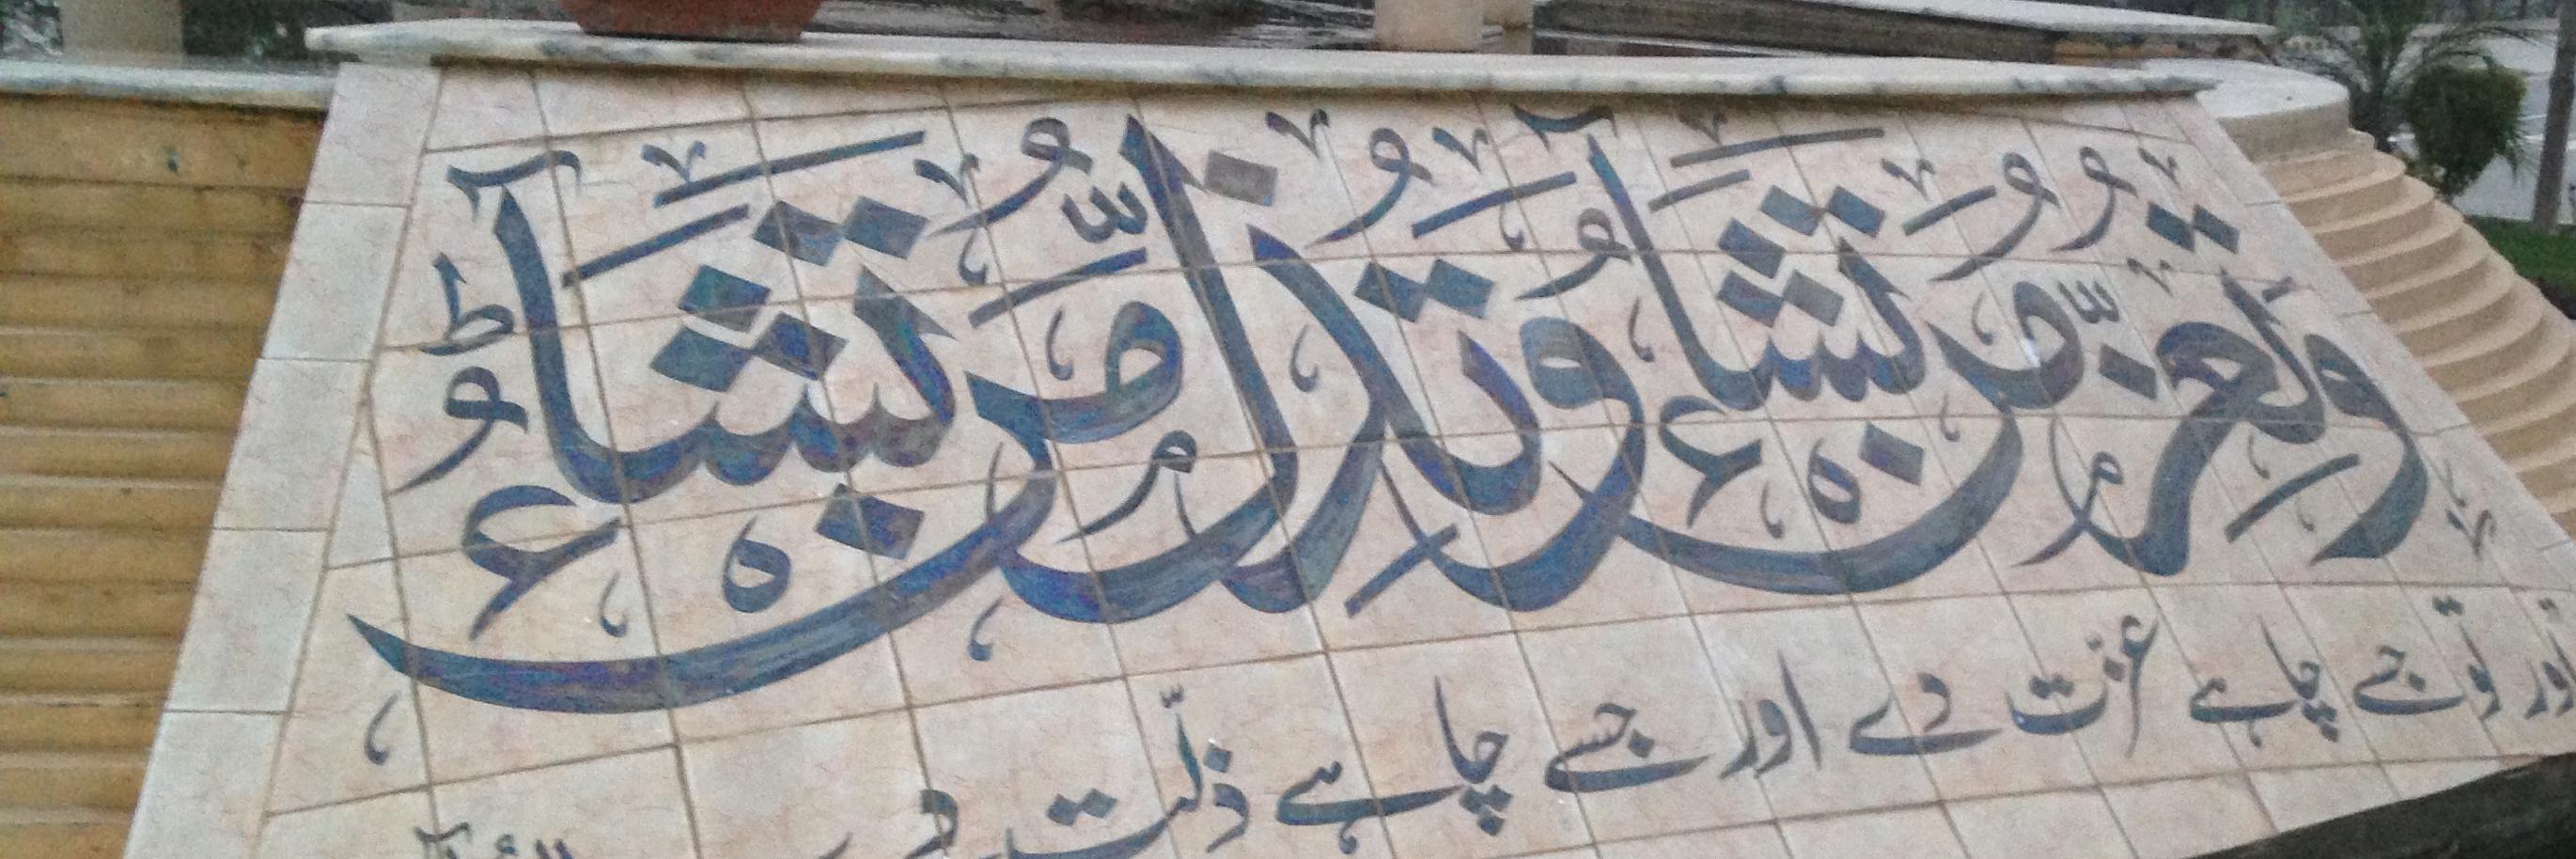 وَتُعِزُّ مَنْ تَشَآءُ وَتُذِلُّ مَنْ تَشَآءُ ط
اور تُو جسے چاہے عزّت دے اور جسے چاہے ذلّت دے